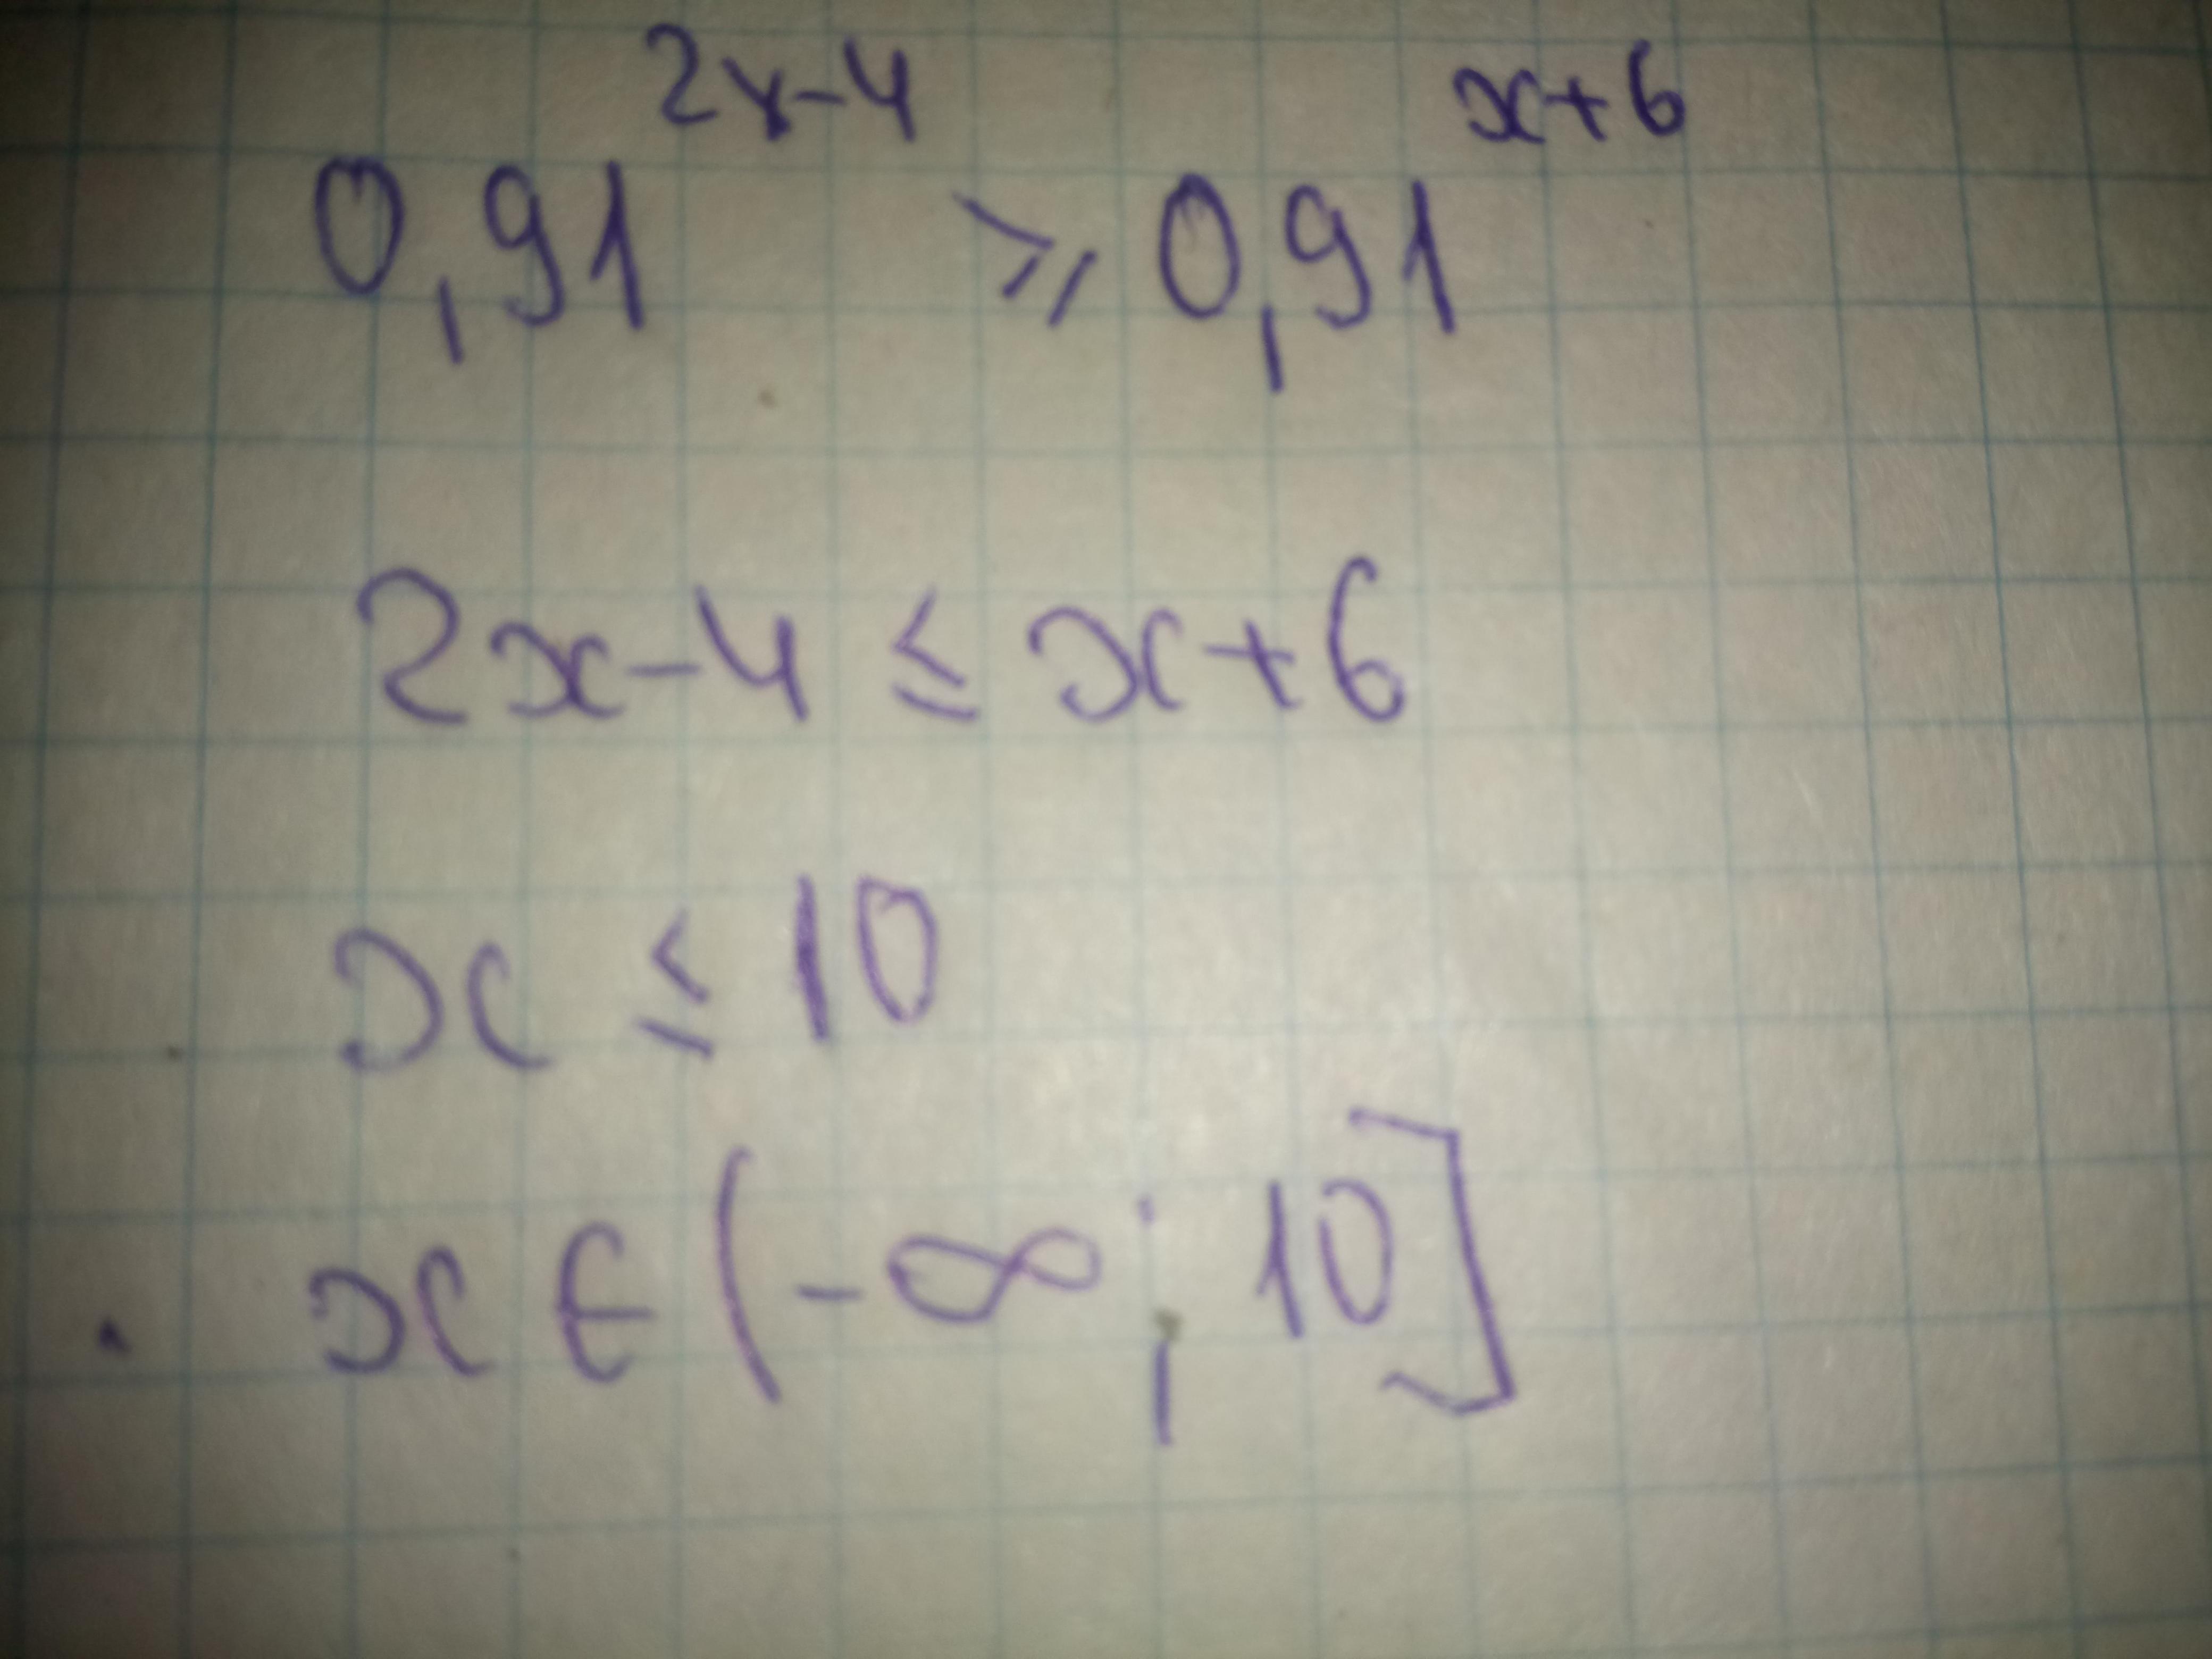 0,91^{2x-4} ⩾ 0,91^{x+6}
2x-4 ≤ x+6
x ≤ 10
x ∈ (-∞; 10]